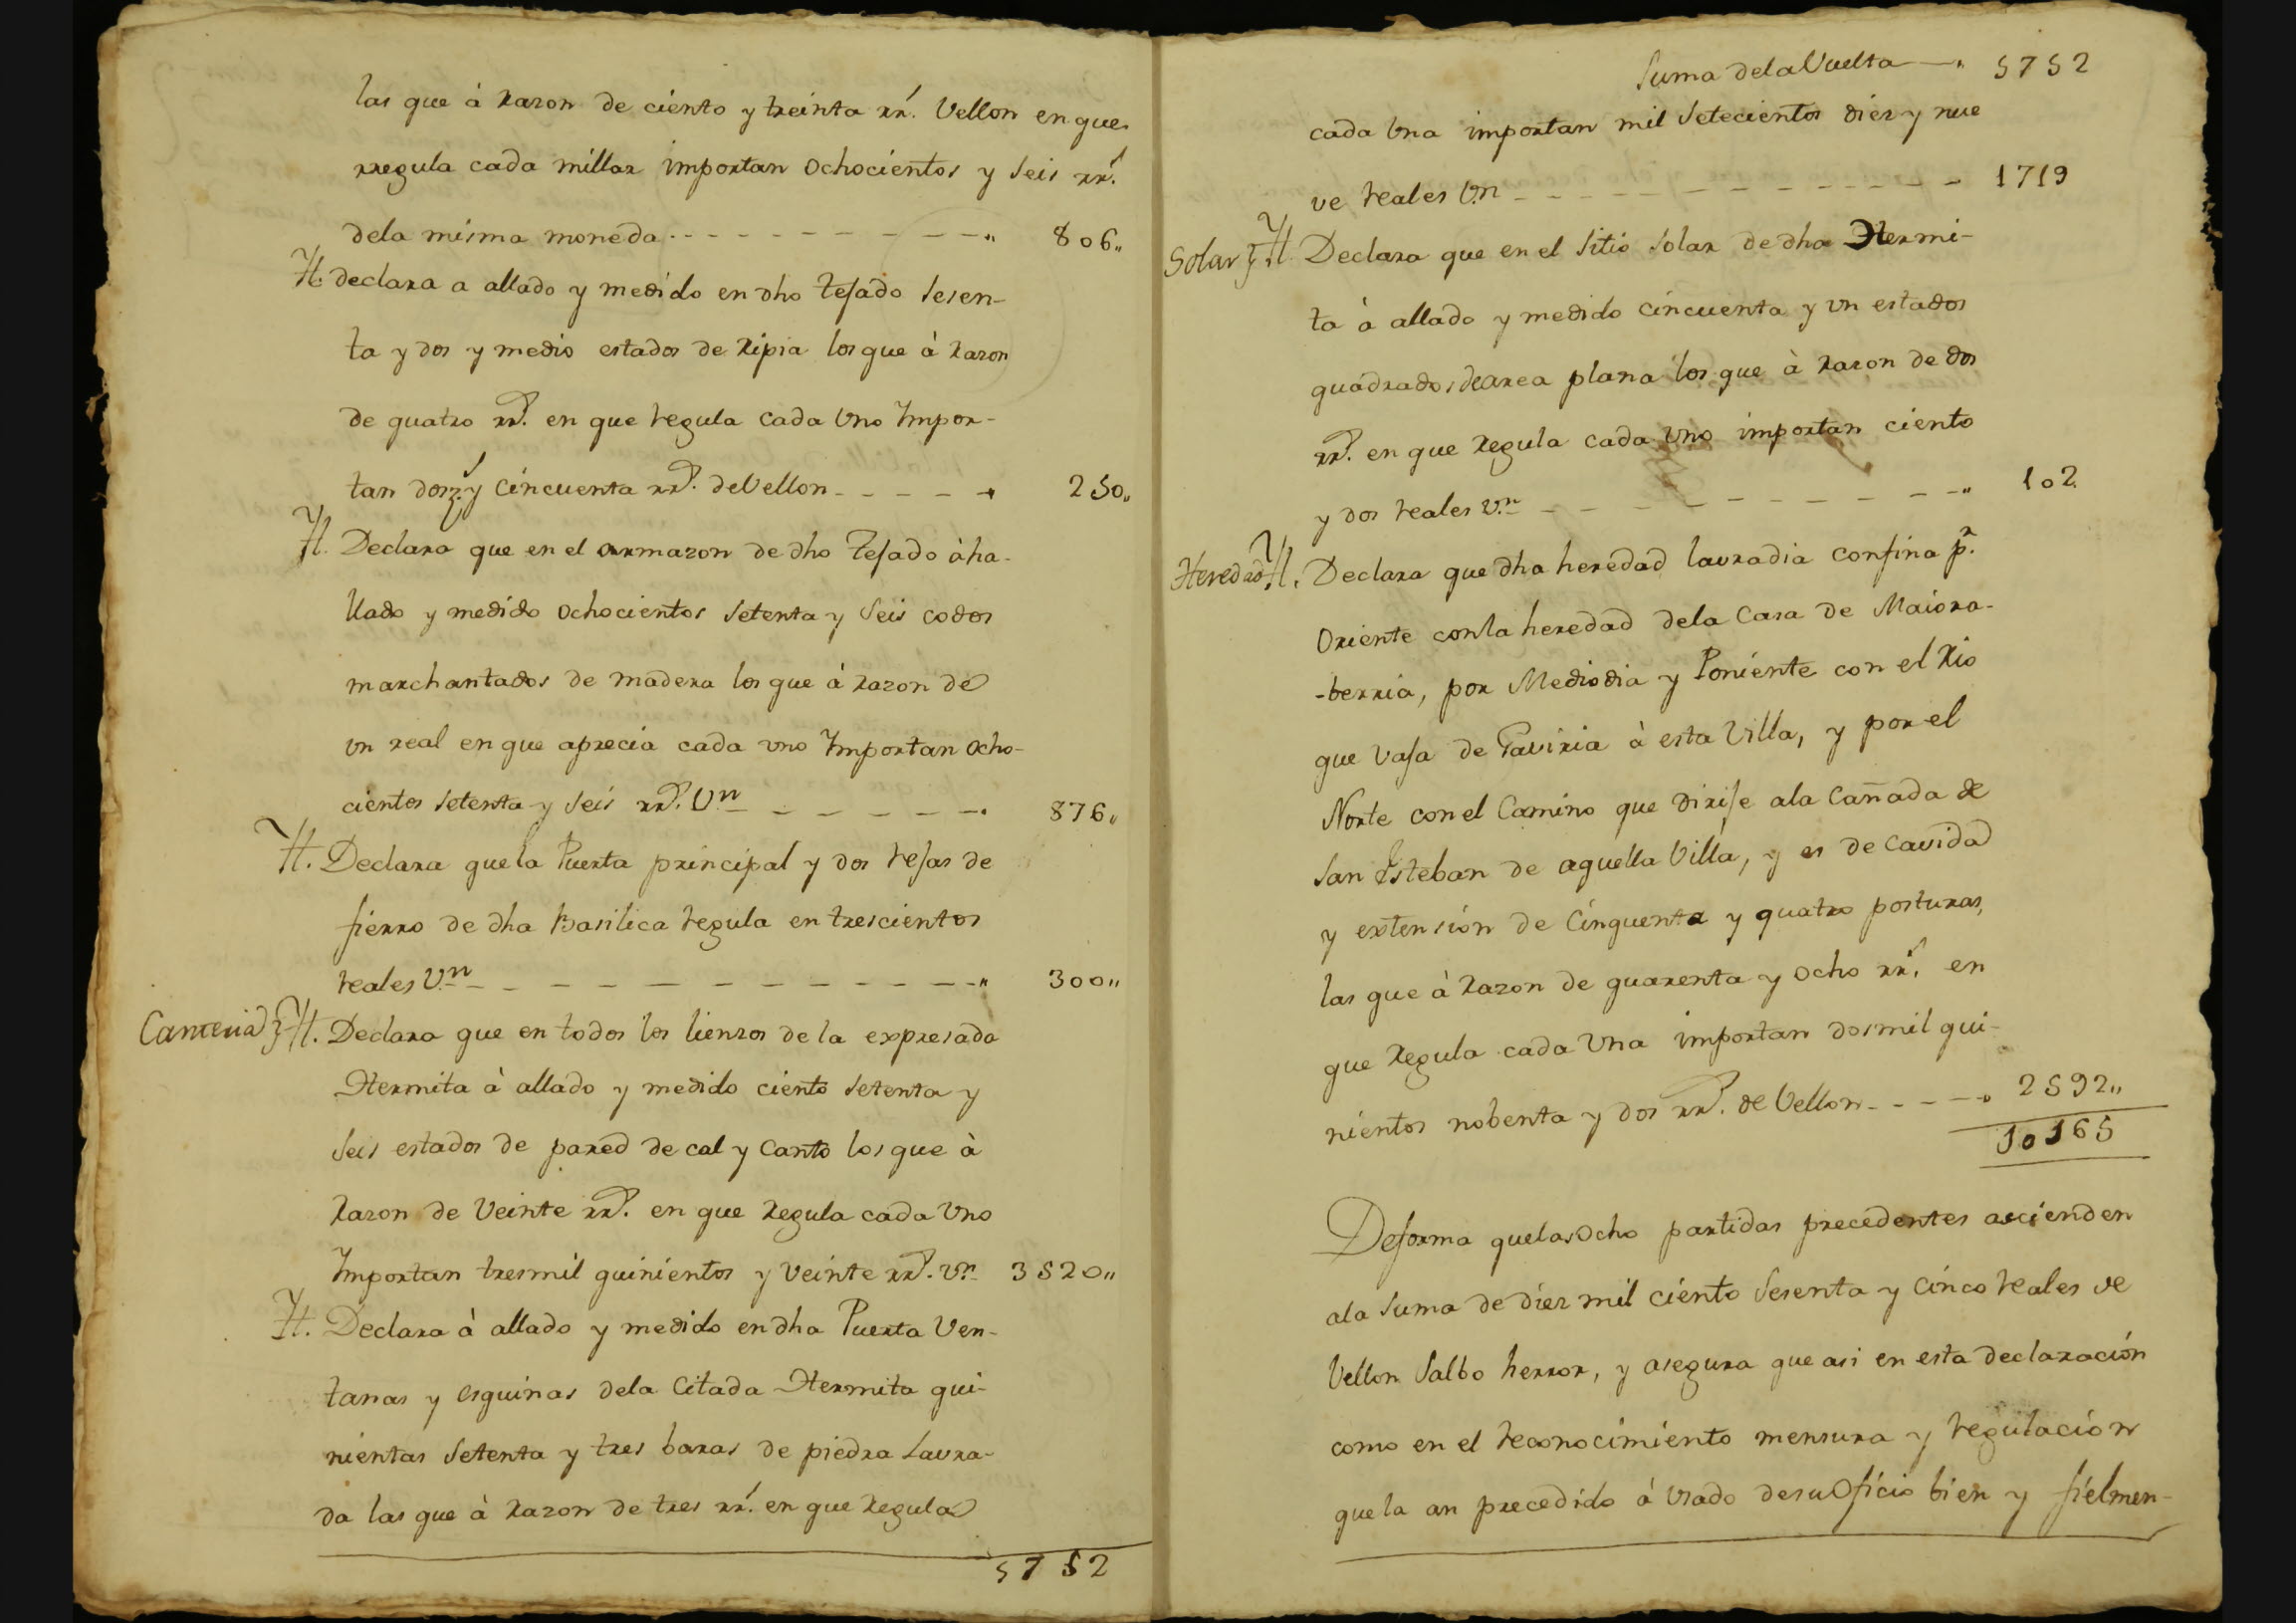 las que à razon de ciento y treinta rr.ˢ Vellon en que
rregula cada millar importan ochocientos y seis rr.ˢ
dela misma moneda 806
Yt. declara a allado y medido en dho tejado sesen-
ta y dos y medio estados de ripia los que à razon
de quatro rr.ˢ en que regula cada Uno Impor-
tan dosz.ˢ y cincuenta rr.ˢ de Vellon 250
Yt. Declara que en el armazon de dho Tejado à ha-
llado y medido ochocientos setenta y seis codos
marchantados de madera los que à razon de
un real en que aprecia cada uno Importan Ocho-
cientos setenta y seis rr.ˢ V.ⁿ 876
Yt. Declara que la Puerta principal y dos rejas de
fierro de dha Basilica regula en trescientos
reales V.ⁿ 300
Canteria Yt. Declara que en todos los lienzos de la expresada
Hermita à allado y medido ciento setenta y
seis estados de pared de cal y canto los que à
razon de Veinte rr.ˢ en que regula cada Uno
Importan tresmil quinientos y veinte rr.ˢ v.ⁿ 3520
Yt. Declara à allado y medido en dha Puerta Ven-
tanas y esquinas dela citada Hermita qui-
nientas setenta y tres baras de piedra Lavra-
da las que à razon de tres rr.ˢ en que regula
5752
Suma dela Vuelta 5752
cada Una importan mil setecientos diez y nue
ve reales V.ⁿ 1719
Solar Yt. Declara que en el sitio solar de dha Hermi-
ta à allado y medido cincuenta y un estados
quadrados de area plana los que à razon de dos
rr.ˢ en que regula cada Uno importan ciento
y dos reales V.ⁿ 102
Heredad Yt. Declara que dha heredad lavradia confina p.ʳ
Oriente con la heredad dela Casa de Maiora-
-berria, por Mediodia y Poniente con el Rio
que vaja de Gaviria à esta Villa, y por el
Norte con el Camino que dirije ala Cañada de
San Esteban de aquella Villa, y es de cavidad
y extension de Cinquenta y quatro posturas,
las que à razon de quarenta y ocho rr.ˢ en
que regula cada Una importan dosmil qui-
nientos nobenta y dos rr.ˢ de Vellon 2592
10165
Deforma que las ocho partidas precedentes ascienden
ala suma de diez mil ciento sesenta y cinco reales de
Vellon Salbo herror, y asegura que asi en esta declaración
como en el reconocimiento mensura y regulación
que la an precedido à usado de su Oficio bien y fielmen-